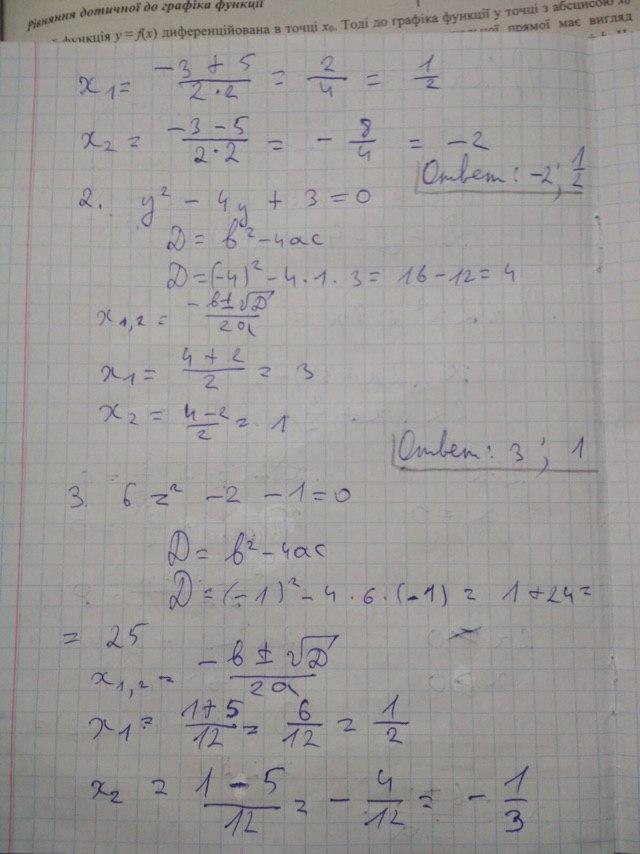 рівняння дотичної до графіка функції
функція y = f(x) диференційована в точці x₀. Тоді до графіка функції у точці з абсцисою x₀
прямої має вигляд
x₁ = (-3 + 5)/(2·2) = 2/4 = 1/2
x₂ = (-3 - 5)/(2·2) = - 8/4 = -2
Ответ: -2; 1/2
2. y² - 4y + 3 = 0
D = b² - 4ac
D = (-4)² - 4·1·3 = 16 - 12 = 4
x₁,₂ = (-b ± √D)/(2a)
x₁ = (4 + 2)/2 = 3
x₂ = (4 - 2)/2 = 1
Ответ: 3; 1
3. 6z² - z - 1 = 0
D = b² - 4ac
D = (-1)² - 4·6·(-1) = 1 + 24 =
= 25
x₁,₂ = (-b ± √D)/(2a)
x₁ = (1 + 5)/12 = 6/12 = 1/2
x₂ = (1 - 5)/12 = - 4/12 = - 1/3